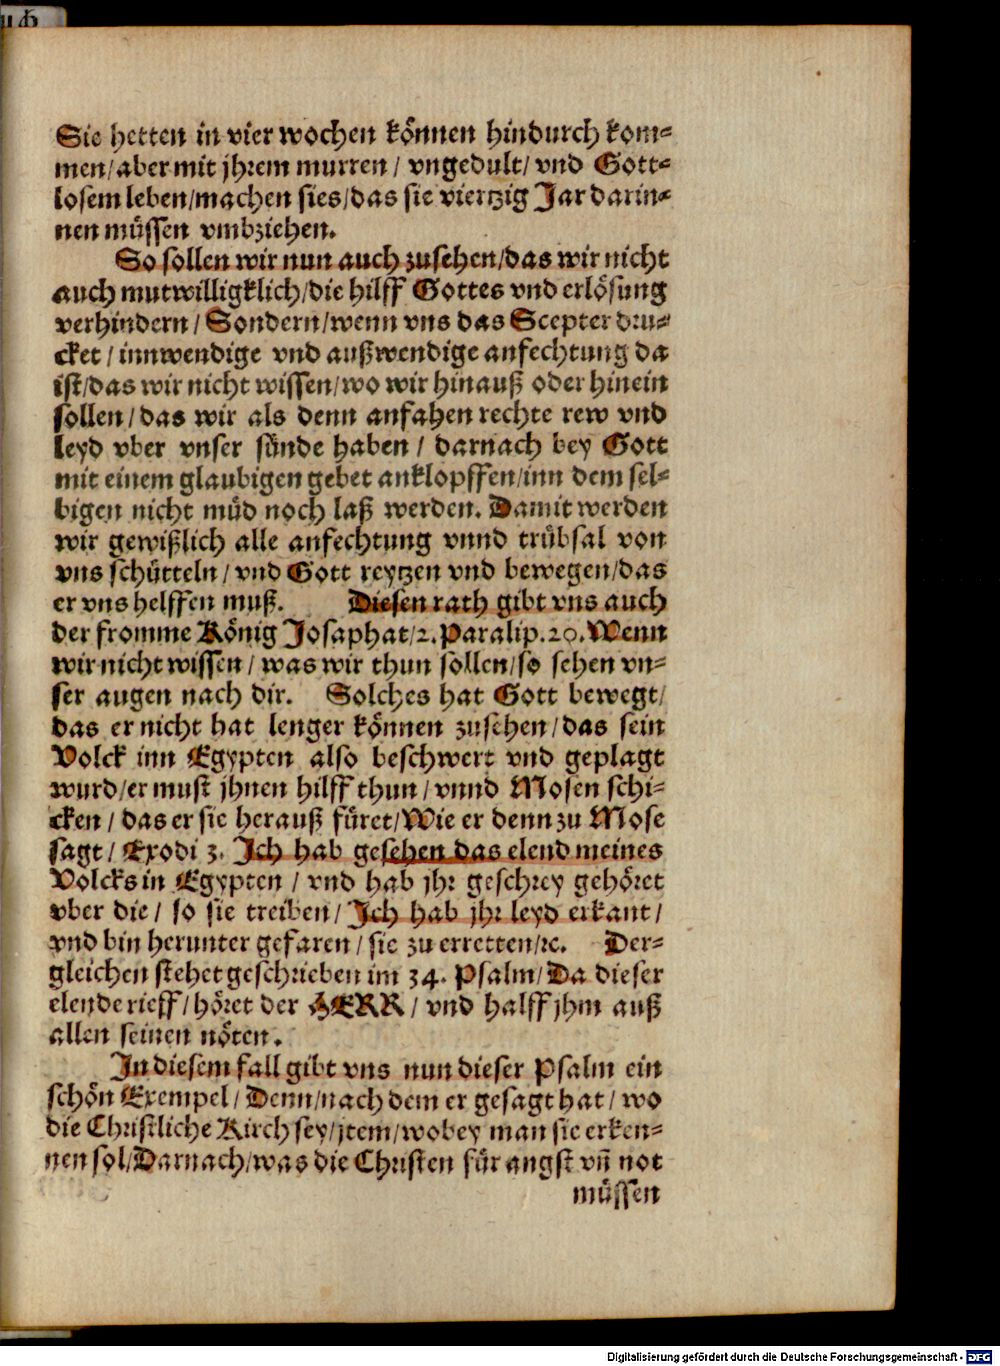 Sie hetten in vier wochen können hindurch kom⸗
men/aber mit jhrem murren / vngedult/ vnd Gott⸗
losem leben/machen sies/das sie viertzig Jar darin⸗
nen müssen vmbziehen.
So sollen wir nun auch zusehen/das wir nicht
auch mutwilligklich/die hilff Gottes vnd erlösung
verhindern / Sondern/wenn vns das Scepter dru⸗
cket / innwendige vnd außwendige anfechtung da
ist/das wir nicht wissen/wo wir hinauß oder hinein
sollen / das wir als denn anfahen rechte rew vnd
leyd vber vnser sünde haben / darnach bey Gott
mit einem glaubigen gebet anklopffen/inn dem sel⸗
bigen nicht müd noch laß werden. Damit werden
wir gewißlich alle anfechtung vnnd trübsal von
vns schütteln / vnd Gott reytzen vnd bewegen/das
er vns helffen muß. Diesen rath gibt vns auch
der fromme König Josaphat/2. Paralip. 20. Wenn
wir nicht wissen / was wir thun sollen/so sehen vn⸗
ser augen nach dir. Solches hat Gott bewegt/
das er nicht hat lenger können zusehen/das sein
Volck inn Egypten also beschwert vnd geplagt
wurd/er must jhnen hilff thun / vnnd Mosen schi⸗
cken / das er sie herauß füret/Wie er denn zu Mose
sagt / Exodi 3. Ich hab gesehen das elend meines
Volcks in Egypten / vnd hab jhr geschrey gehöret
vber die / so sie treiben/ Ich hab jhr leyd erkant /
vnd bin herunter gefaren / sie zu erretten/ꝛc. Der⸗
gleichen stehet geschrieben im 34. Psalm/Da dieser
elende rieff/höret der HERR / vnd halff jhm auß
allen seinen nöten.
In diesem fall gibt vns nun dieser Psalm ein
schön Exempel/ Denn/nach dem er gesagt hat / wo
die Christliche Kirch sey/jtem/wobey man sie erken⸗
nen sol/Darnach/was die Christen für angst vn̄ not
müssen
Digitalisierung gefördert durch die Deutsche Forschungsgemeinschaft - DFG